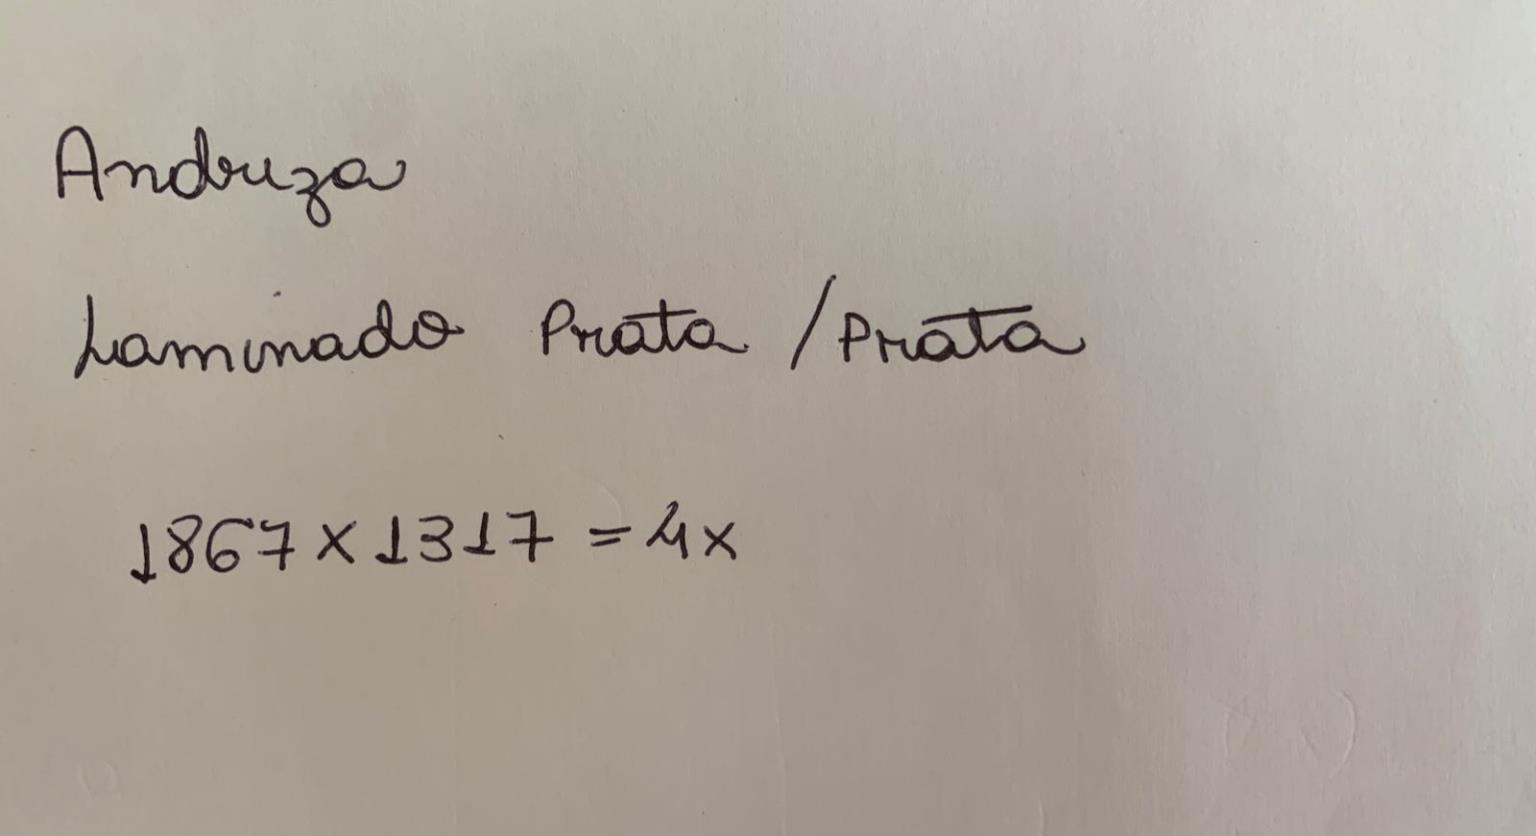 Andreza
Laminado Prata / Prata
1867 x 1317 = 4x